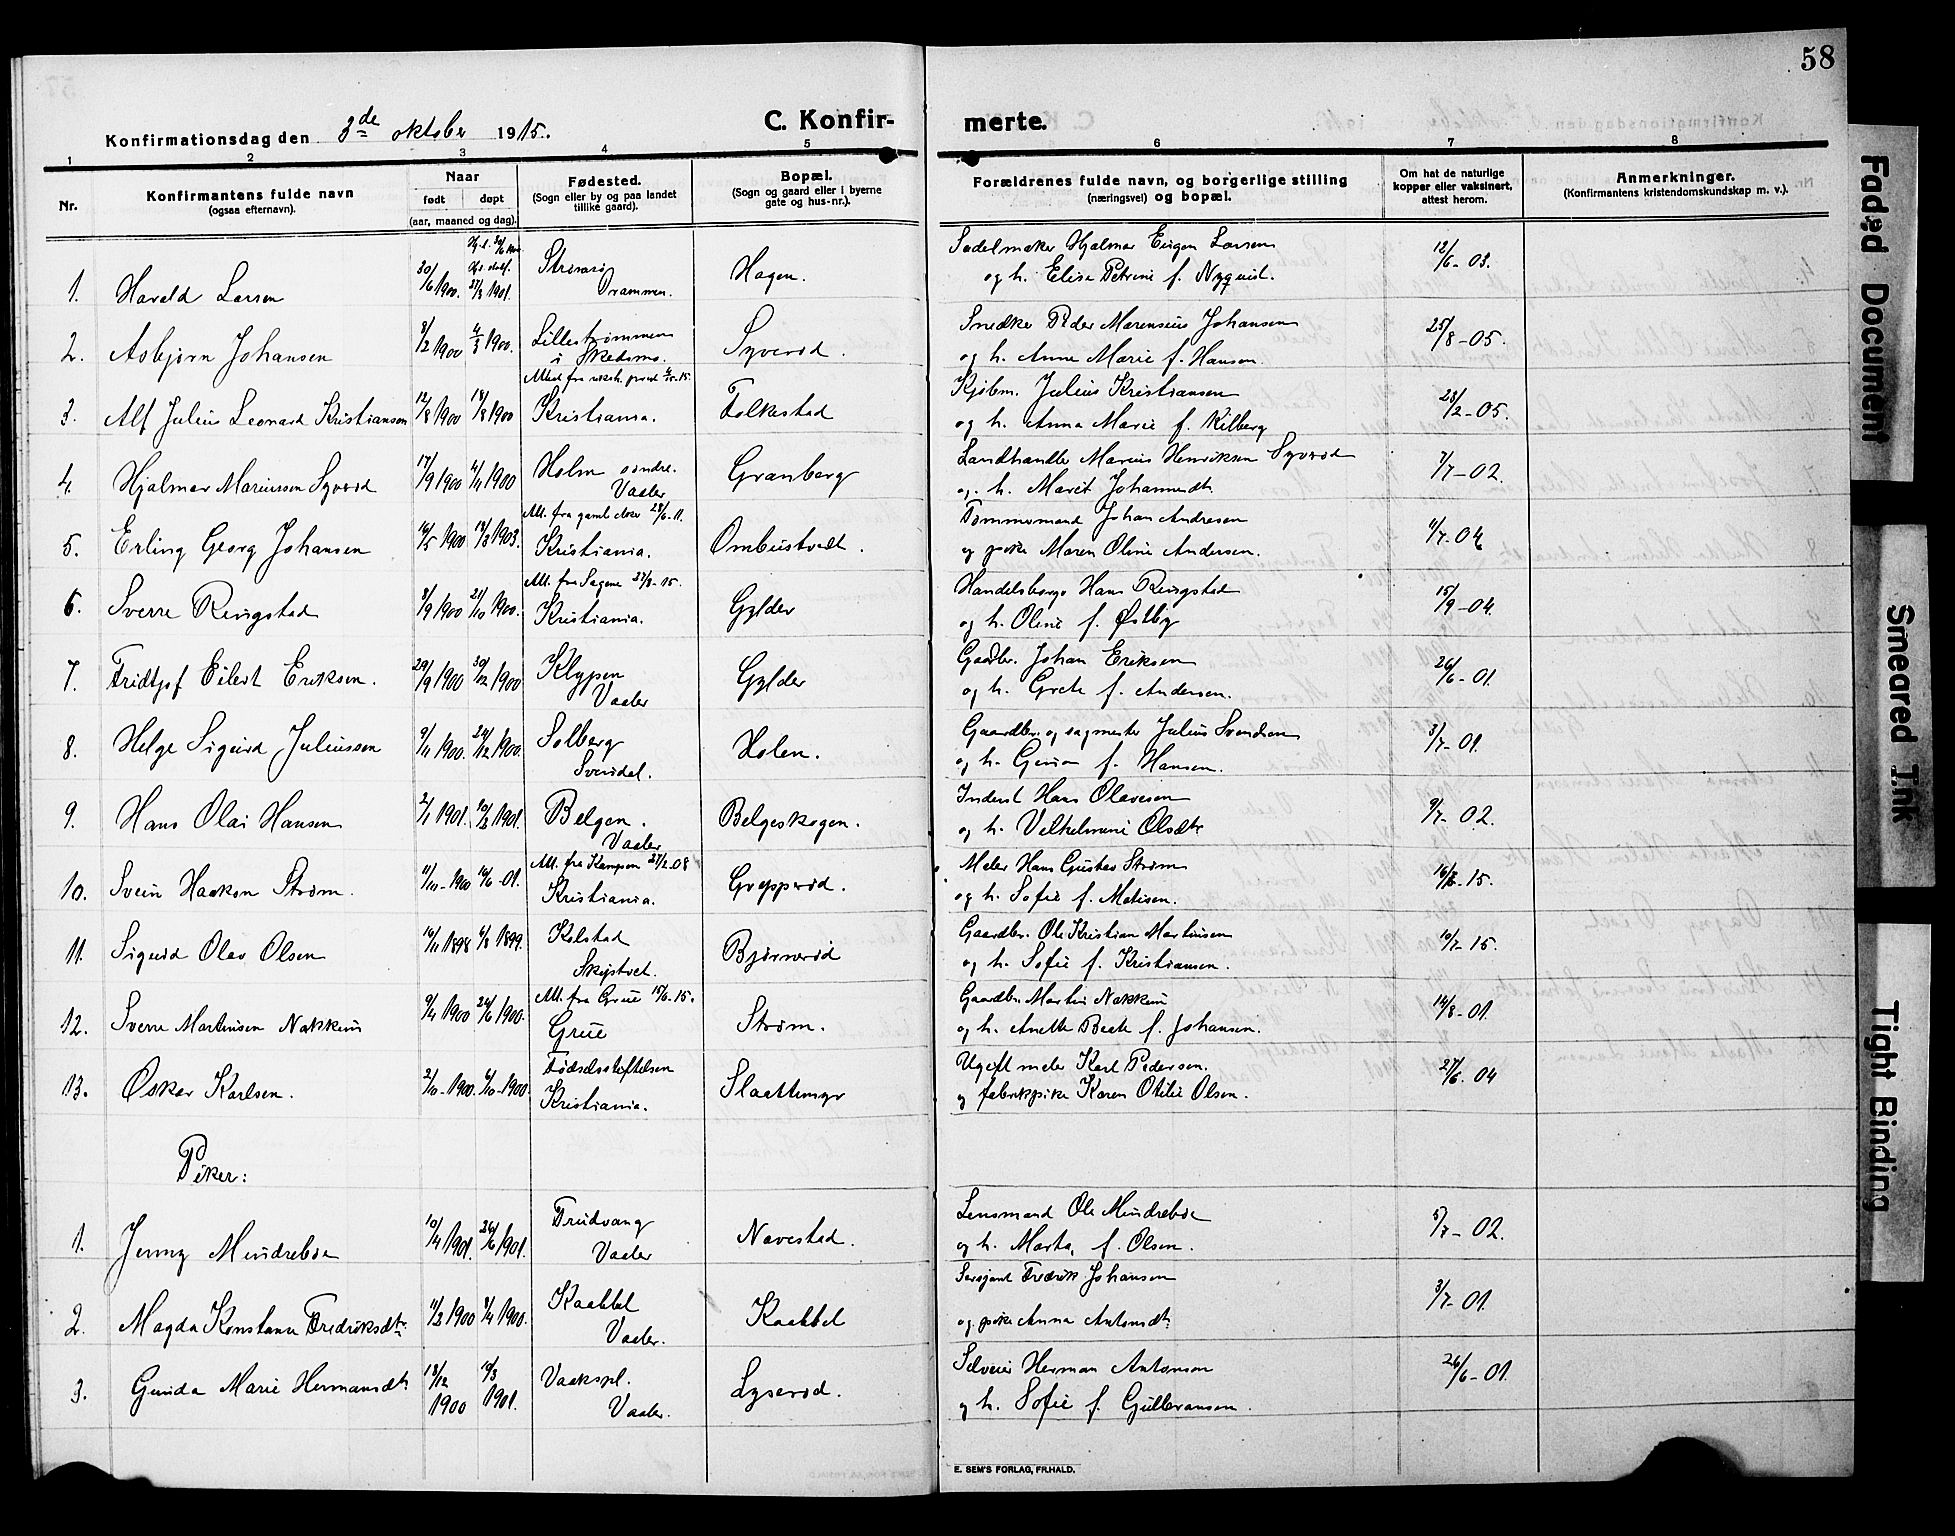 58
Konfirmationsdag den 3de oktober 1915.
C. Konfir- merte.
1 2 3 4 5 6 7 8
Nr.
Konfirmantens fulde navn
(ogsaa efternavn).
Naar
født døpt
(aar, maaned og dag).
Fødested.
(Sogn eller by og paa landet
tillike gaard).
Bopæl.
(Sogn og gaard eller i byerne
gate og hus-nr.).
Forældrenes fulde navn, og borgerlige stilling
(næringsvei) og bopæl.
Om hat de naturlige
kopper eller vaksinert,
attest herom.
Anmerkninger.
(Konfirmantens kristendomskundskap m. v.).
Sadelmaker Hjalmar Eugen Larsen
1. Harald Larsen 30/6 1900. 27/3 1901. Strømsø Drammen. Hagen. og h. Elise Petrine f. Nyquist. 12/6 - 03.
Snedker Peder Marensius Johansen
2. Asbjørn Johansen 8/2 1900 4/3 1900. Lillestrømmen i Skedsmo. Syverød. og h. Anne Marie f. Hansen. 25/8 - 05.
Kjøbm. Julius Kristiansen
3. Alf Julius Leonard Kristiansen 12/8 1900 18/8 1900 Kristiania. Folkestad og h. Anna Marie f. Kilberg 28/2 - 05.
Landhandler Marius Henriksen Syverød
4. Hjalmar Mariussen Syverød 17/9 1900 4/11 1900 Holm søndre. Vaaler Granberg og h. Marit Johannesdt. 7/7 - 02.
Tømmermand Johan Andresen
5. Erling Georg Johansen 16/5 1900 Kristiania. Ombustvedt. og pike Maren Oline Andersen. 4/7 - 04
Att. fra Sagene 27/8 - 15.
Handelsborger Hans Ringstad
6. Sverre Ringstad 8/9 1900 21/10 1900. Kristiania. Gylder og h. Oline f. Østby 15/9 - 04.
Gaardbr. Johan Eriksen
7. Fridtjof Eilert Eriksen. 29/9 1900 30/12 1900 Klypen Vaaler Gylder og h. Grete f. Andersen. 26/6 - 01.
Gaardbr. og sagmester Julius Svendsen
8. Helge Sigurd Juliussen 9/11 1900. 26/12 1900. Solberg Svendal. Holen. og h. f. Hansen. 3/7 - 01.
Inderst Hans Olavesen
9. Hans Olai Hansen 2/1 1901. 10/3 1901. Belgen. Vaaler Belgeskogen. og h. Vilhelmine Olsdt. 9/7 - 02.
Att. fra Kampen 27/2 08
Maler Hans Gustav Strøm
10. Svein Haakon Strøm. 11/10 - 1900 16/6 - 01. Kristiania. Grepperød. og h. Sofie f. Matisen. 15.
Gaardbr. Ole Kristian Martinsen
11. Sigurd Olav Olsen 16/11 1898 1899. Kolstad Skiptvet. Bjørnerød og h. Sofie f. Kristiansen. 10/7 - 15.
Att. fra Grue 15/6 - 15.
Gaardbr. Martin Nakkim
12. Sverre Martinsen Nakkim 9/4 1900 24/6 1900. Grue Strøm. og h. Anette Beate f. Johansen. 14/8 - 01.
Ugift maler Karl Pedersen.
13. Oskar Karlsen. 2/10 - 1900. 6/10 - 1900. Fødselsstiftelsen Kristiania. Slaattemyr og fabrikpike Karen Otilie Olsen. 27/6. 04
Piker:
Lensmand Ole Mindrebøe
1. Jenny Mindrebøe 10/4 1901. 26/6 1901. Trudvang Vaaler Navestad. og h. Marta, f. Olsen. 5/7 - 02.
Sersjant Fredrik Johansen
2. Magda Konstanse Fredriksdt. 11/2 1900 8/4 1900. Kaabbel Vaaler. Kaabbel og pike Anna Antonsdt. 3/7 - 01.
Selveier Herman Antonsen
3. Gunda Marie Hermansdt. 18/12 1900 10/3 1901. Vaakspl. Vaaler. Lyserød. og h. Sofie f. Gulbransen. 26/6 - 01.
E. SEM'S FORLAG, FR.HALD.
Faded Document
Smeared Ink
Tight Binding